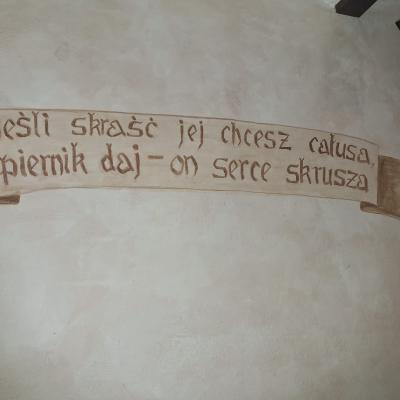 jeśli skraść jej chcesz całusa,
piernik daj – on serce skrusza